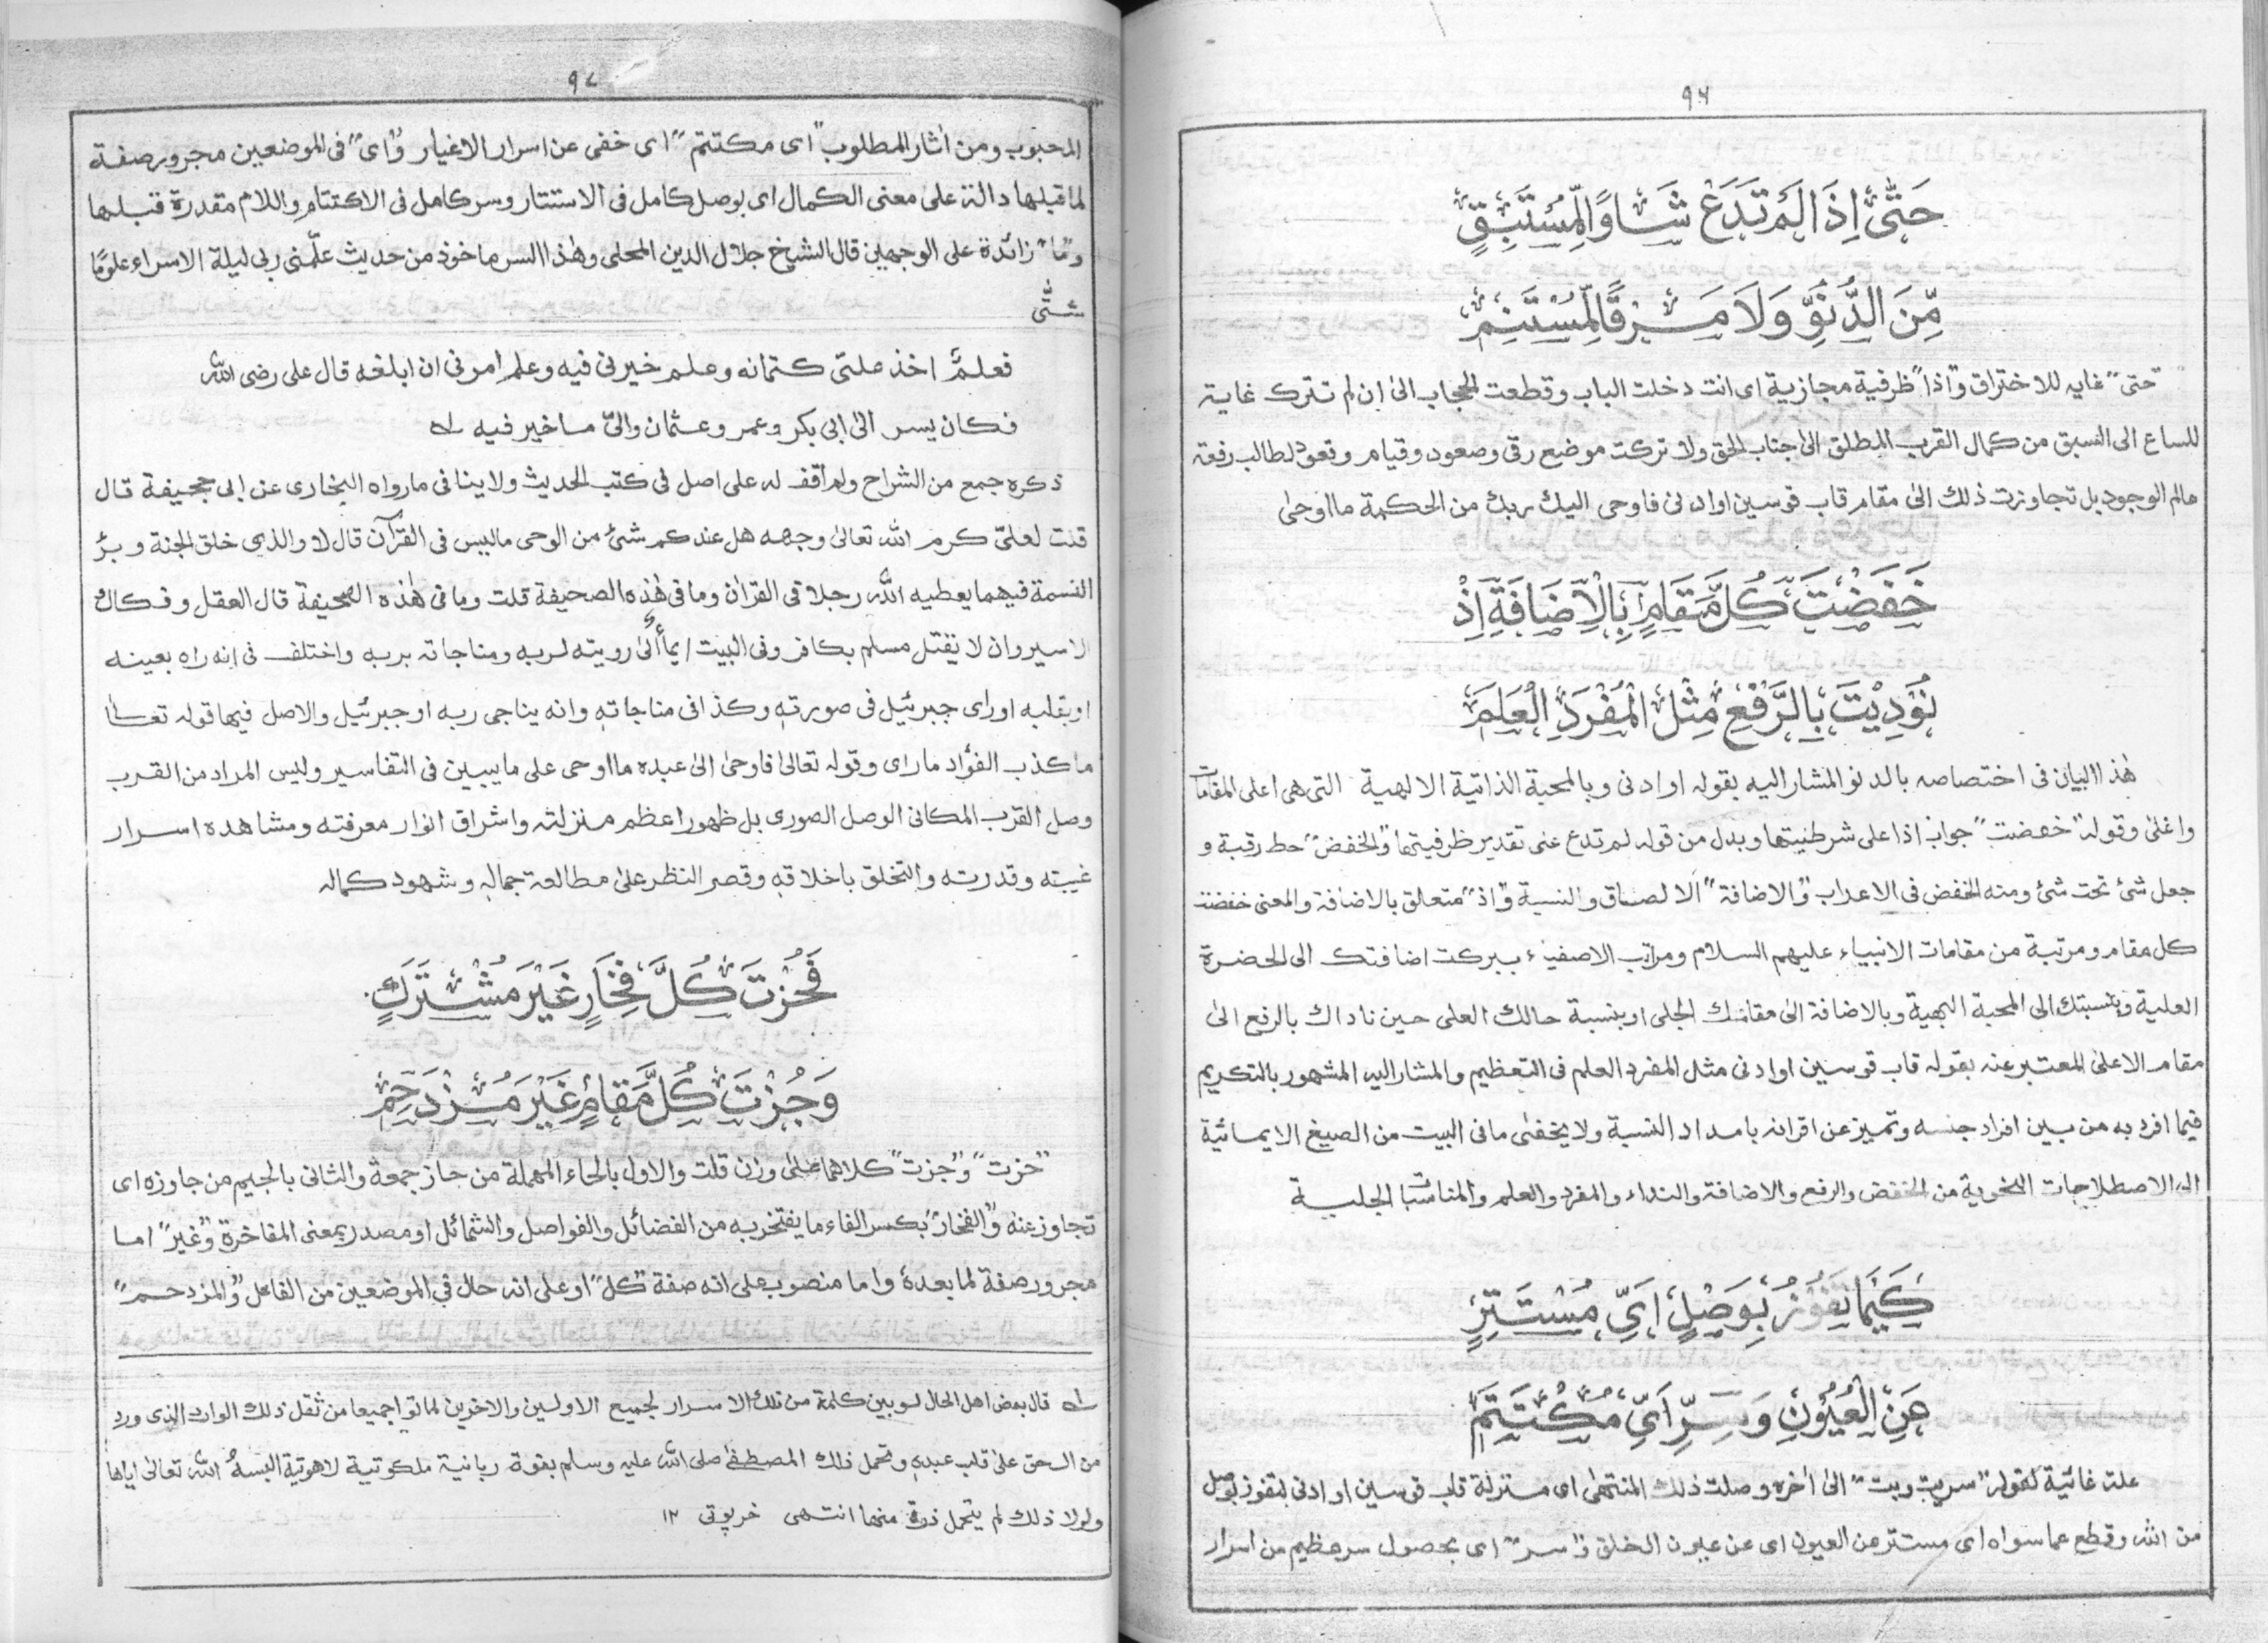 ٩٦
حَتّٰى اِذَا لَمْ تَدَعْ شَاْوًا لِّمُسْتَبِقٍ
مِّنَ الدُّنُوِّ وَلَا مَرْقًا لِّمُسْتَنِمٖ
"حتى" غايه للاختراق و"اذا" ظرفية مجازية اى انت دخلت الباب وقطعت الحجاب الىٰ ان لم تترك غاية
للساع الى السبق من كمال القرب المطلق الىٰ جناب الحق ولا تركت موضع رقى وصعود وقيام وقعود لطالب رفعة
عالم الوجود بل تجاوزت ذلك الىٰ مقام قاب قوسين او ادنىٰ فاوحى اليك ربك من الحكمة ما اوحىٰ
خَفَضْتَ كُلَّ مَقَامٍ بِالْاِضَافَةِ اِذْ
نُوْدِيْتَ بِالرَّفْعِ مِثْلَ الْمُفْرَدِ الْعَلَمٖ
هٰذا البيان فى اختصاصه بالدنو المشار اليه بقوله او ادنى وبالمحبة الذاتية الالهية التى هى اعلى المقامات
واغلىٰ وقوله "خفضت" جواب اذا على شرطيتها وبدل من قوله لم تدع على تقدير ظرفيتها و"الخفض" حط رقبة و
جعل شئ تحت شئ ومنه الخفض فى الاعراب و"الاضافة" الالصاق والنسبة و"اذ" متعلق بالاضافة والمعنى خفضت
كل مقام ومرتبة من مقامات الانبياء عليهم السلام ومراتب الاصفياء ببركت اضافتك الى الحضرة
العلية وبنسبتك الى المحبة البهية وبالاضافة الىٰ مقامك الجلى او بنسبة حالك العلى حين ناداك بالرفع الىٰ
مقام الاعلىٰ المعتبر عنه بقوله قاب قوسين او ادنى مثل المفرد العلم فى التعظيم والمشار اليه المشهور بالتكريم
فيما افرد به من بين افراد جنسه وتميز عن اقرانه بامداد النسبة ولا يخفىٰ ما فى البيت من الصيغ الايمائية
الى الاصطلاحات النحوية من الخفض والرفع والاضافة والنداء والمفرد والعلم والمناسبات الجلية
كَيْمَا تَفُوْزَ بِوَصْلٍ اَىِّ مُسْتَتِرٍ
عَنِ الْعُيُوْنِ وَسِرٍّ اَىِّ مُكْتَتَمٖ
علت غائية لقوله "سريت وبت" الىٰ اٰخره وصلت ذلك المنتهىٰ اى منزلة قاب قوسين او ادنى لتفوز بوصل
من الله وقطع عما سواه اى مستتر عن العيون اى عن عيون الخلق و"سر" اى بحصول سر عظيم من اسرار
٩٧
المحبوب ومن اٰثار المطلوب "اى مكتتم" اى خفى عن اسرار الاغيار و"اى" فى الموضعين مجرور صفة
لما قبلها دالة على معنى الكمال اى بوصل كامل فى الاستتار وسر كامل فى الاكتتام واللام مقدرة قبلها
و"ما" زائدة على الوجهين قال الشيخ جلال الدين المحلى وهٰذا السر ماخوذ من حديث علّمنى ربى ليلة الاسراء علومًا
شتّٰى
فعلمٌ اخذ علىّ كتمانه وعلم خيرنى فيه وعلم امرنى ان ابلغه قال على رضى الله
فكان يسر الىٰ ابى بكر وعمر وعثمان والىّ ما خير فيه ١؎
ذكره جمع من الشراح ولم اقف له على اصل فى كتب الحديث ولا ينافى ما رواه البخارى عن ابى جحيفة قال
قلت لعلىّ كرم الله تعالىٰ وجهه هل عندكم شئ من الوحى ما ليس فى القرآن قال لا والذى خلق الجنة وبرٔ
النسمة فيهما يعطيه الله رجلا فى القرآن وما فى هٰذه الصحيفة قلت وما فى هٰذه الصحيفة قال العقل وفكاك
الاسير وان لا يقتل مسلم بكافر وفى البيت ايماء الىٰ رويته لربه ومناجاته بربه واختلف فى انه راه بعينه
او بقلبه او راى جبرئيل فى صورته وكذا فى مناجاته وانه يناجى ربه او جبرئيل والاصل فيها قوله تعالىٰ
ما كذب الفؤاد ما راى وقوله تعالىٰ فاوحىٰ الىٰ عبده ما اوحى على ما يبين فى التفاسير وليس المراد من القرب
وصل القرب المكانى الوصل الصورى بل ظهور اعظم منزلته واشراق انوار معرفته ومشاهده اسرار
غيبته وقدرته والتخلق باخلاقه وقصر النظر علىٰ مطالعة جماله وشهود كماله
فَحُزْتَ كُلَّ فِخَارٍ غَيْرَ مُشْتَرَكٍ
وَجُزْتَ كُلَّ مَقَامٍ غَيْرَ مُزْدَحِمٖ
"حزت" و"جزت" كلاهما علىٰ وزن قلت والاول بالحاء المهملة من حاز جمعة والثانى بالجيم من جاوزه اى
تجاوز عنه و"الفخار" بكسر الفاء ما يفتخر به من الفضائل والفواصل والشمائل او مصدر بمعنى المفاخرة و"غير" اما
مجرور صفة لما بعدهٗ واما منصوب على انه صفة "كل" او على انه حال فى الموضعين من الفاعل و"المزدحم"
١؎ قال بعض اهل الحال لو بين كلمة من تلك الاسرار لجميع الاولين والاخرين لماتوا جميعا من ثقل ذلك الوارد الذى ورد
من الحق علىٰ قلب عبده وتحمل ذلك المصطفىٰ صلى الله عليه وسلم بقوة ربانية ملكوتية لاهوتية البسهٗ الله تعالىٰ اياها
ولولا ذلك لم يتحمل ذرة منها انتهى خرپوتى ١٢